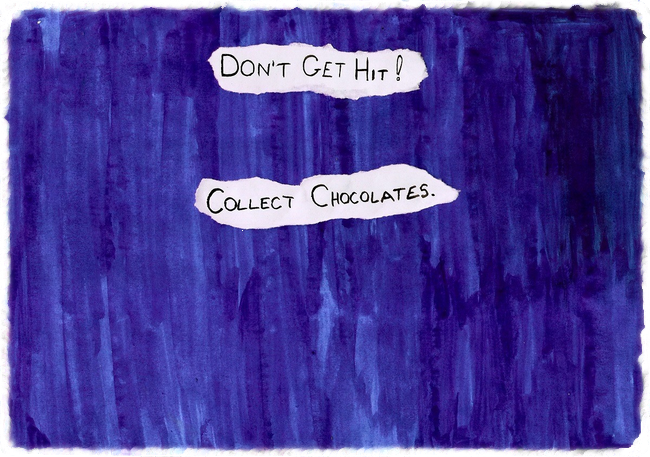 Don't Get Hit!
Collect Chocolates.